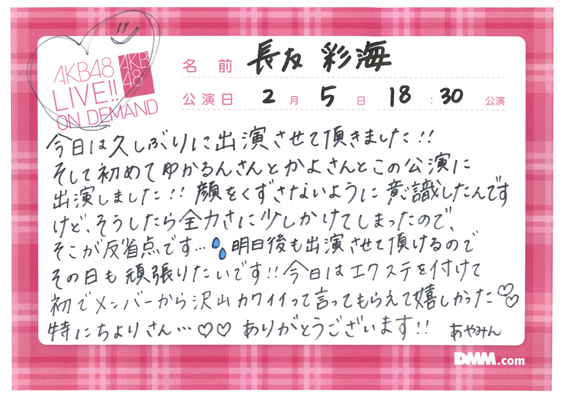 AKB48
LIVE!!
ON DEMAND
AKB
48
名前 長友 彩海
公演日 2月5日 18:30 公演
今日は久しぶりに出演させて頂きました!!
そして初めてゆかるんさんとかよさんとこの公演に
出演しました!! 顔をくずさないように意識したんです
けど、そうしたら全力さに少しかけてしまったので、
そこが反省点です… 明日後も出演させて頂けるので
その日も頑張りたいです!! 今日はエクステを付けて
初でメンバーから沢山カワイイって言ってもらえて嬉しかった♡♡
特にちよりさん…♡♡ ありがとうございます!! あやみん
DMM.com